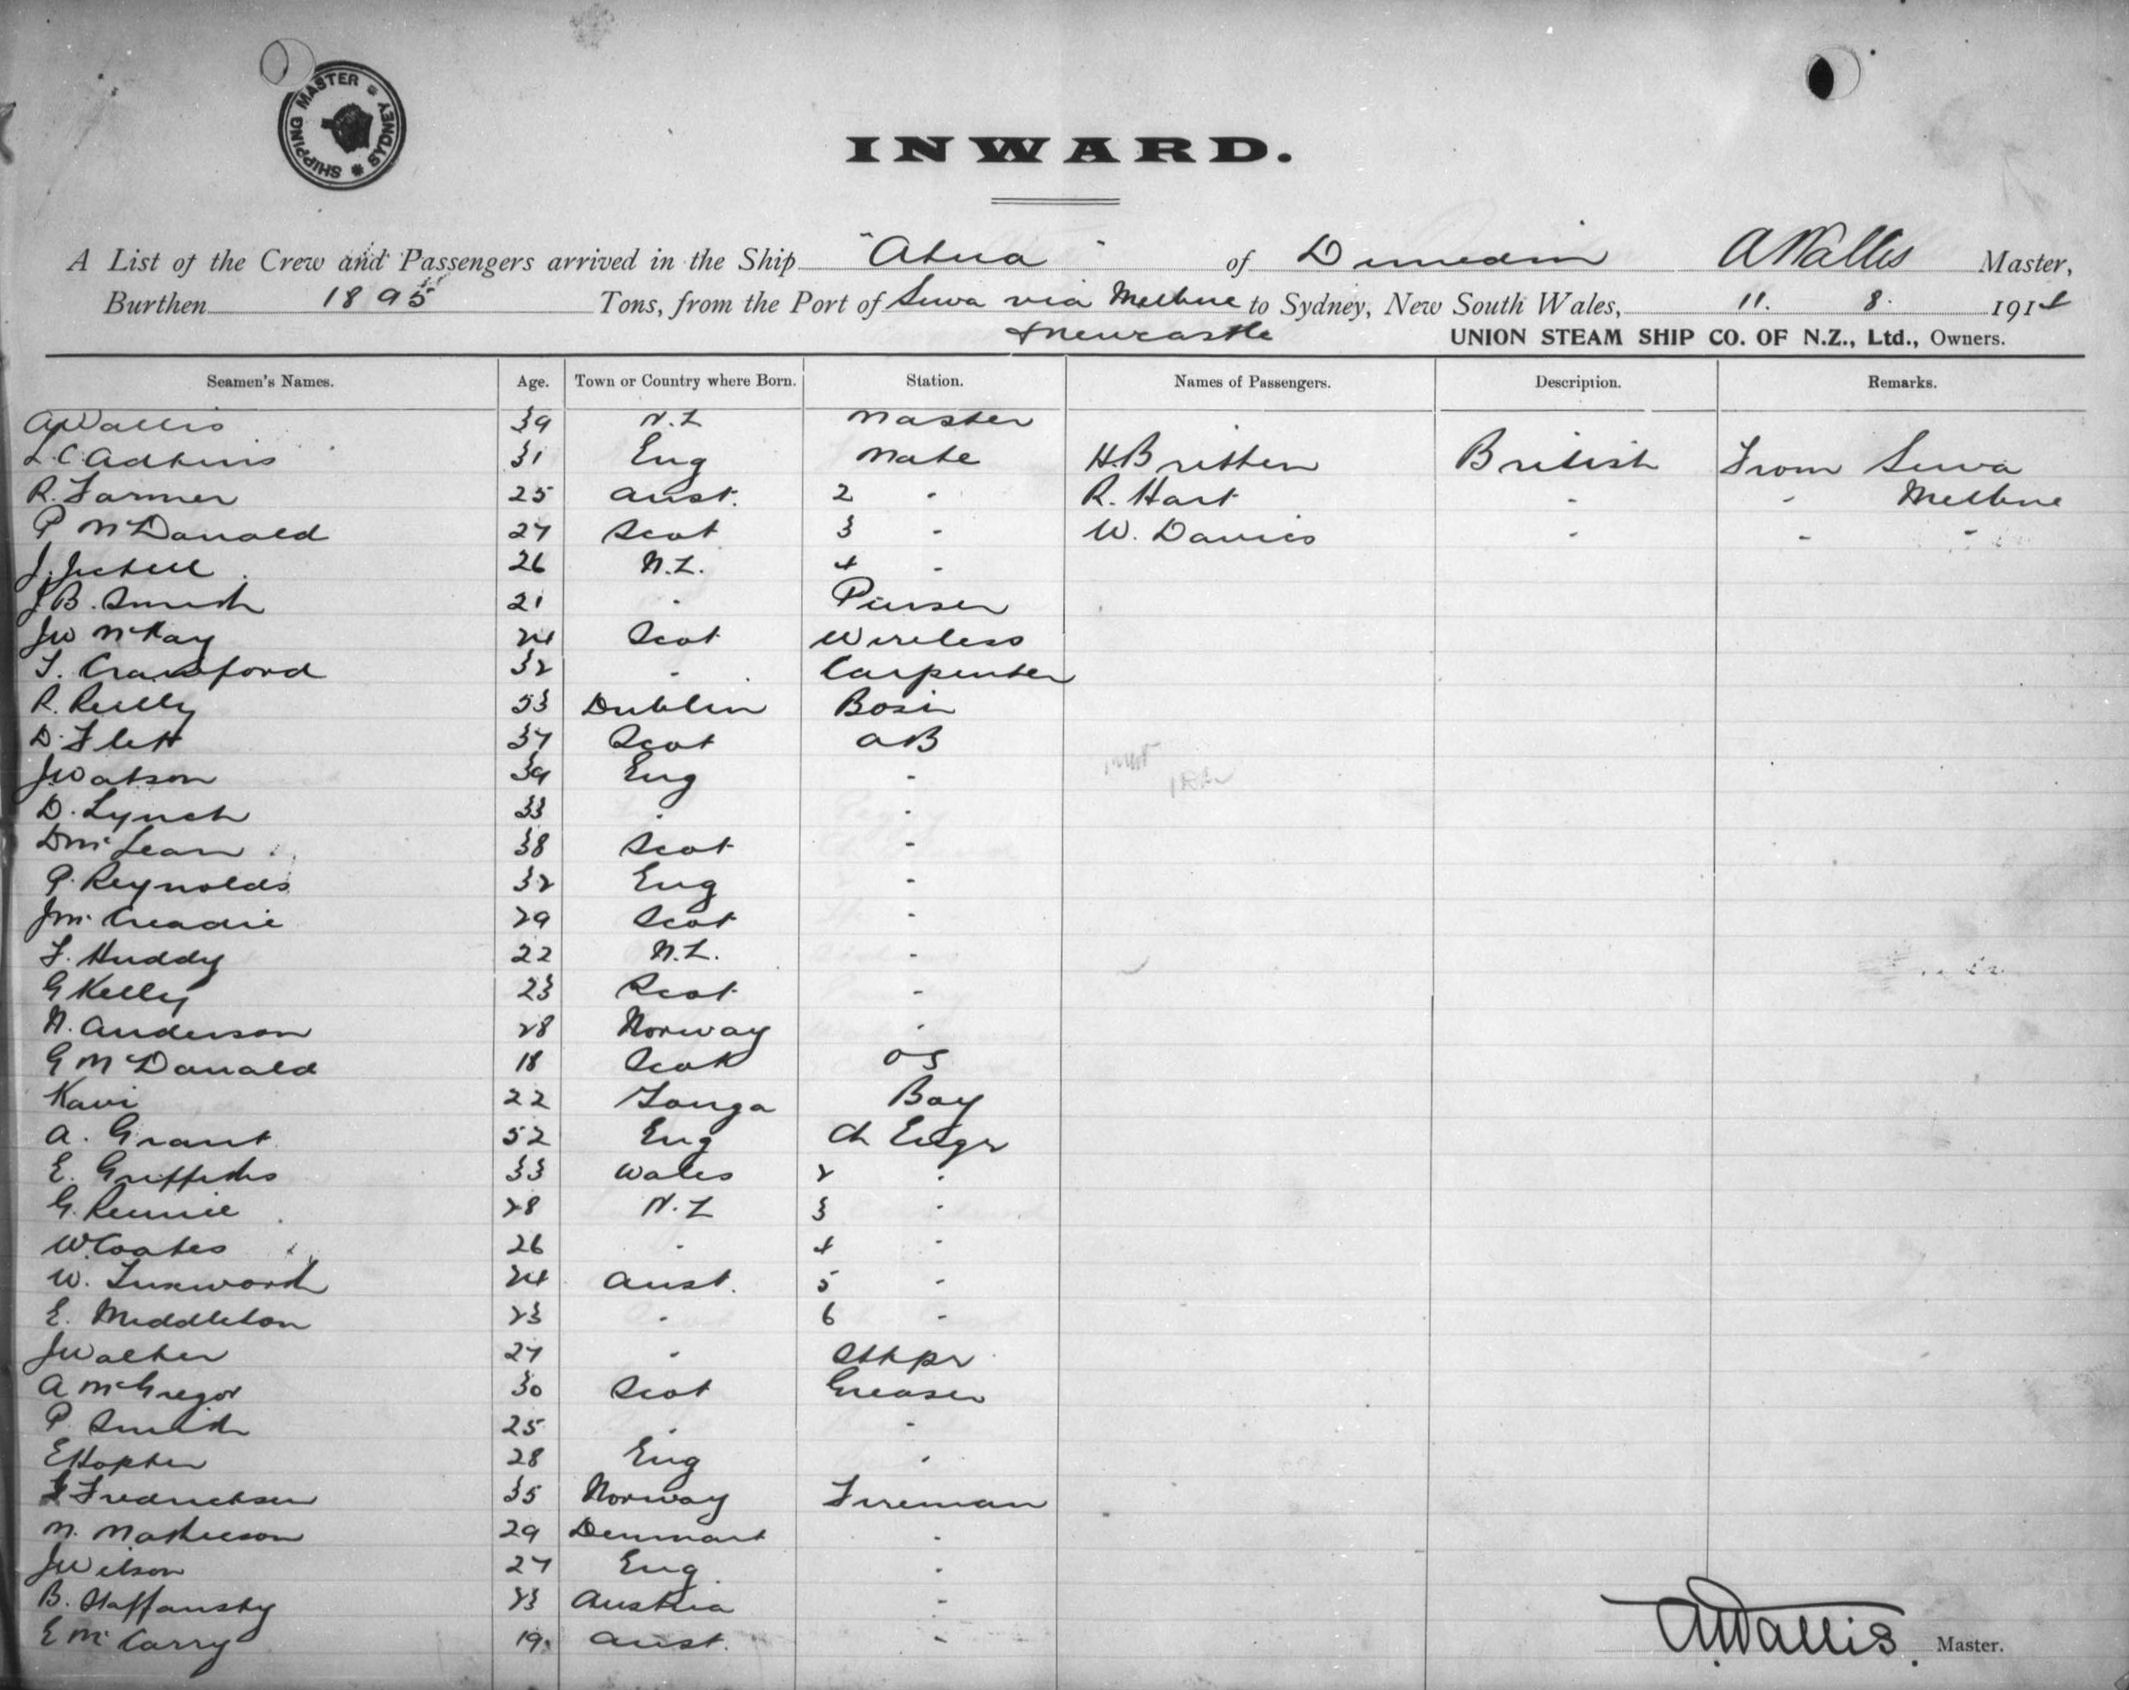 SHIPPING MASTER * SYDNEY *
INWARD.
A List of the Crew and Passengers arrived in the Ship "Atua" of Dunedin A Wallis Master,
Burthen 1895 Tons, from the Port of Suva via Melbne to Sydney, New South Wales, 11. 8. 1914
& Newcastle UNION STEAM SHIP CO. OF N.Z., Ltd., Owners.
Seamen's Names. Age. Town or Country where Born. Station. Names of Passengers. Description. Remarks.
A Wallis 39 N.Z Master
L.C. Adkins 31 Eng Mate H. Britten British From Suva
R. Farmer 25 Aust. 2 " R. Hart " " Melbne
P McDonald 27 Scot 3 " W. Davies " " "
J. 26 N.Z. 4 "
J B. Smith 21 " Purser
J W McKay 24 Scot Wireless
F. Crawford 32 " Carpenter
R. Reilly 53 Dublin Bosin
D. Flett 37 Scot AB
J Watson 39 Eng "
D. Lynch 33 " "
D McLean 38 Scot "
P. Reynolds 32 Eng "
J McCreadie 29 Scot "
F. Huddy 22 N.Z. "
G Kelly 23 Scot "
N. Anderson 28 Norway "
G McDonald 18 Scot OS
Kavi 22 Tonga Boy
A. Grant 52 Eng Ch Engr
E. Griffiths 33 Wales 2 "
G. Rennie 28 N.Z 3 "
W. Coates 26 " 4 "
W. Tuxworth 24 Aust. 5 "
E. Middleton 23 " 6 "
J Walker 27 " Stkpr
A McGregor 30 Scot Greaser
P. Smith 25 " "
E 28 Eng "
F Fredricksen 35 Norway Fireman
M. Mathieson 29 Denmark "
J Wilson 27 Eng. "
B. 23 Austria "
E McCarry 19 Aust. "
A Wallis. Master.